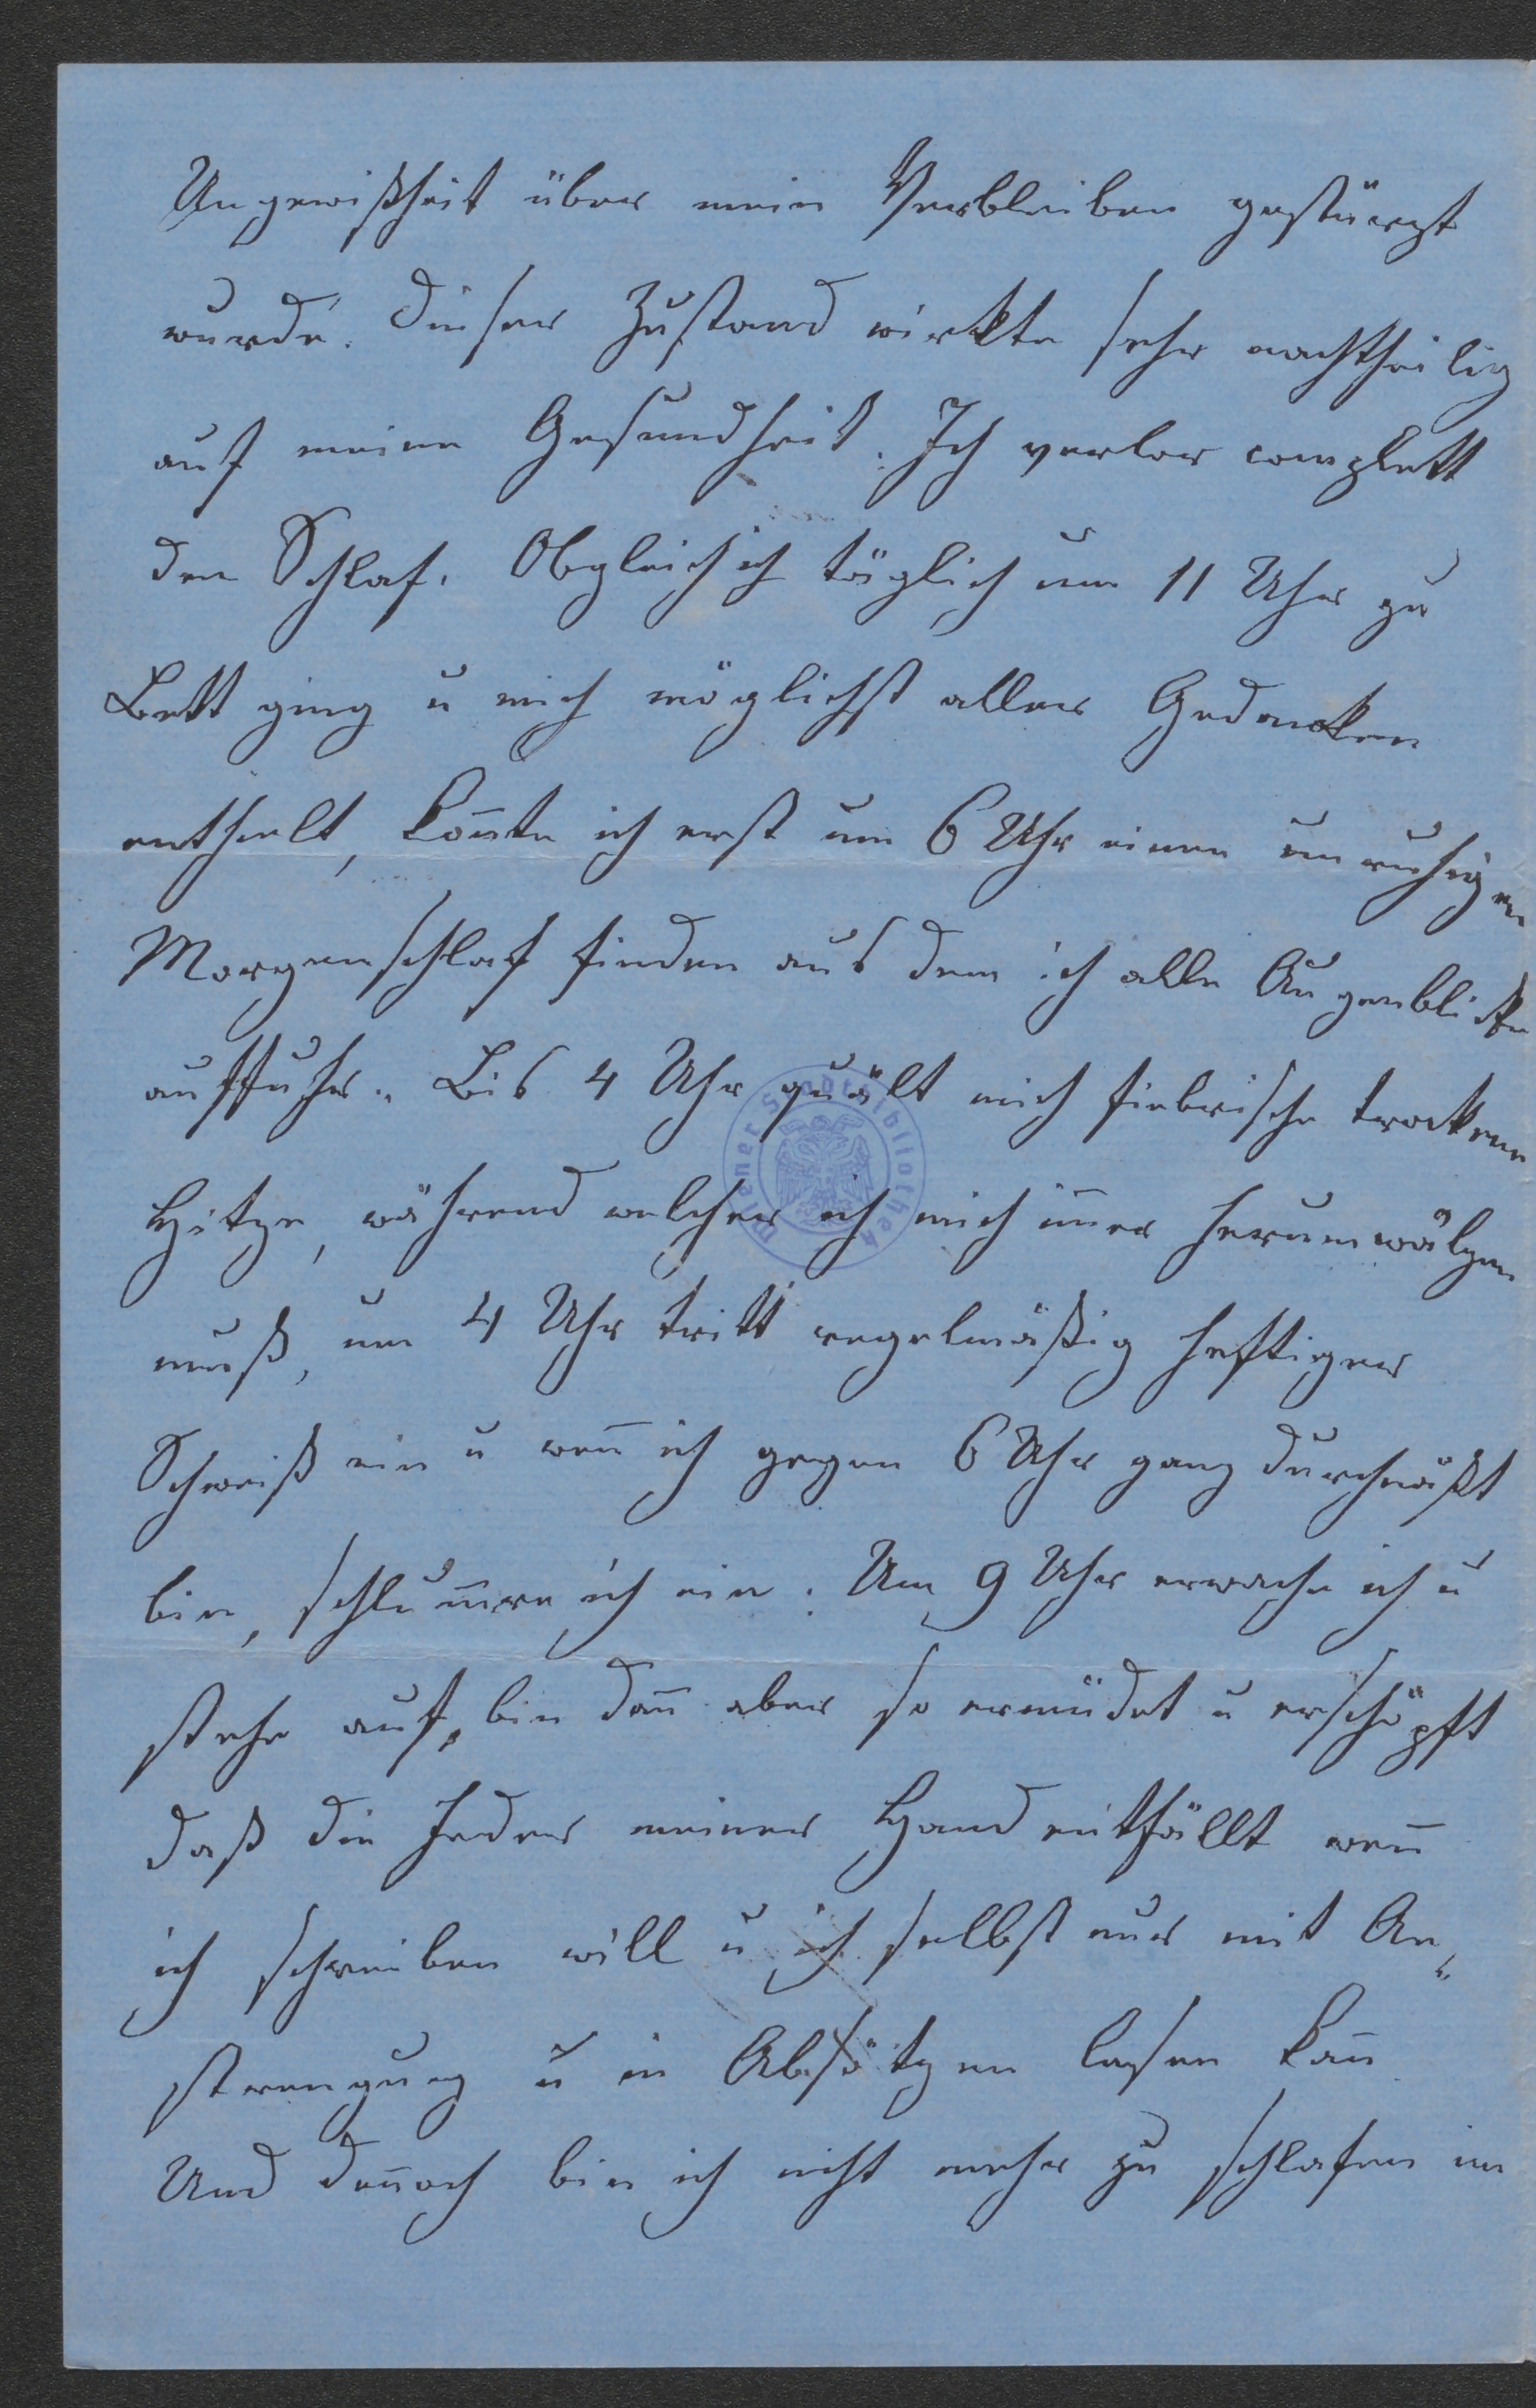 Ungewißheit über mein Verbleiben gestürzt
wurde. Dieser Zustand wirkte sehr nachtheilig
auf meine Gesundheit. Ich verlor complett
den Schlaf. Obgleich ich täglich um 11 Uhr zu
Bett ging u mich möglichst aller Gedanken
enthielt, kon̄te ich erst um 6 Uhr einen unruhigen
Morgenschlaf finden aus dem ich alle Augenblicke
auffuhr. Bis 4 Uhr quält mich fiebrische trockene
Hitze, während welcher ich mich im̄er herumwälzen
muß, um 4 Uhr tritt regelmäßig heftiger
Schweiß ein u wen̄ ich gegen 6 Uhr ganz durchnäßt
bin, schlum̄re ich ein. Um 9 Uhr erwache ich u
stehe auf, bin dan̄ aber so ermüdet u erschöpft
daß die Feder meiner Hand entfällt wen̄
ich schreiben will u ich selbst nur mit An„
strengung u in Absätzen lesen kan̄
Und den̄och bin ich nicht mehr zu schlafen im
Wiener Stadtbibliothek